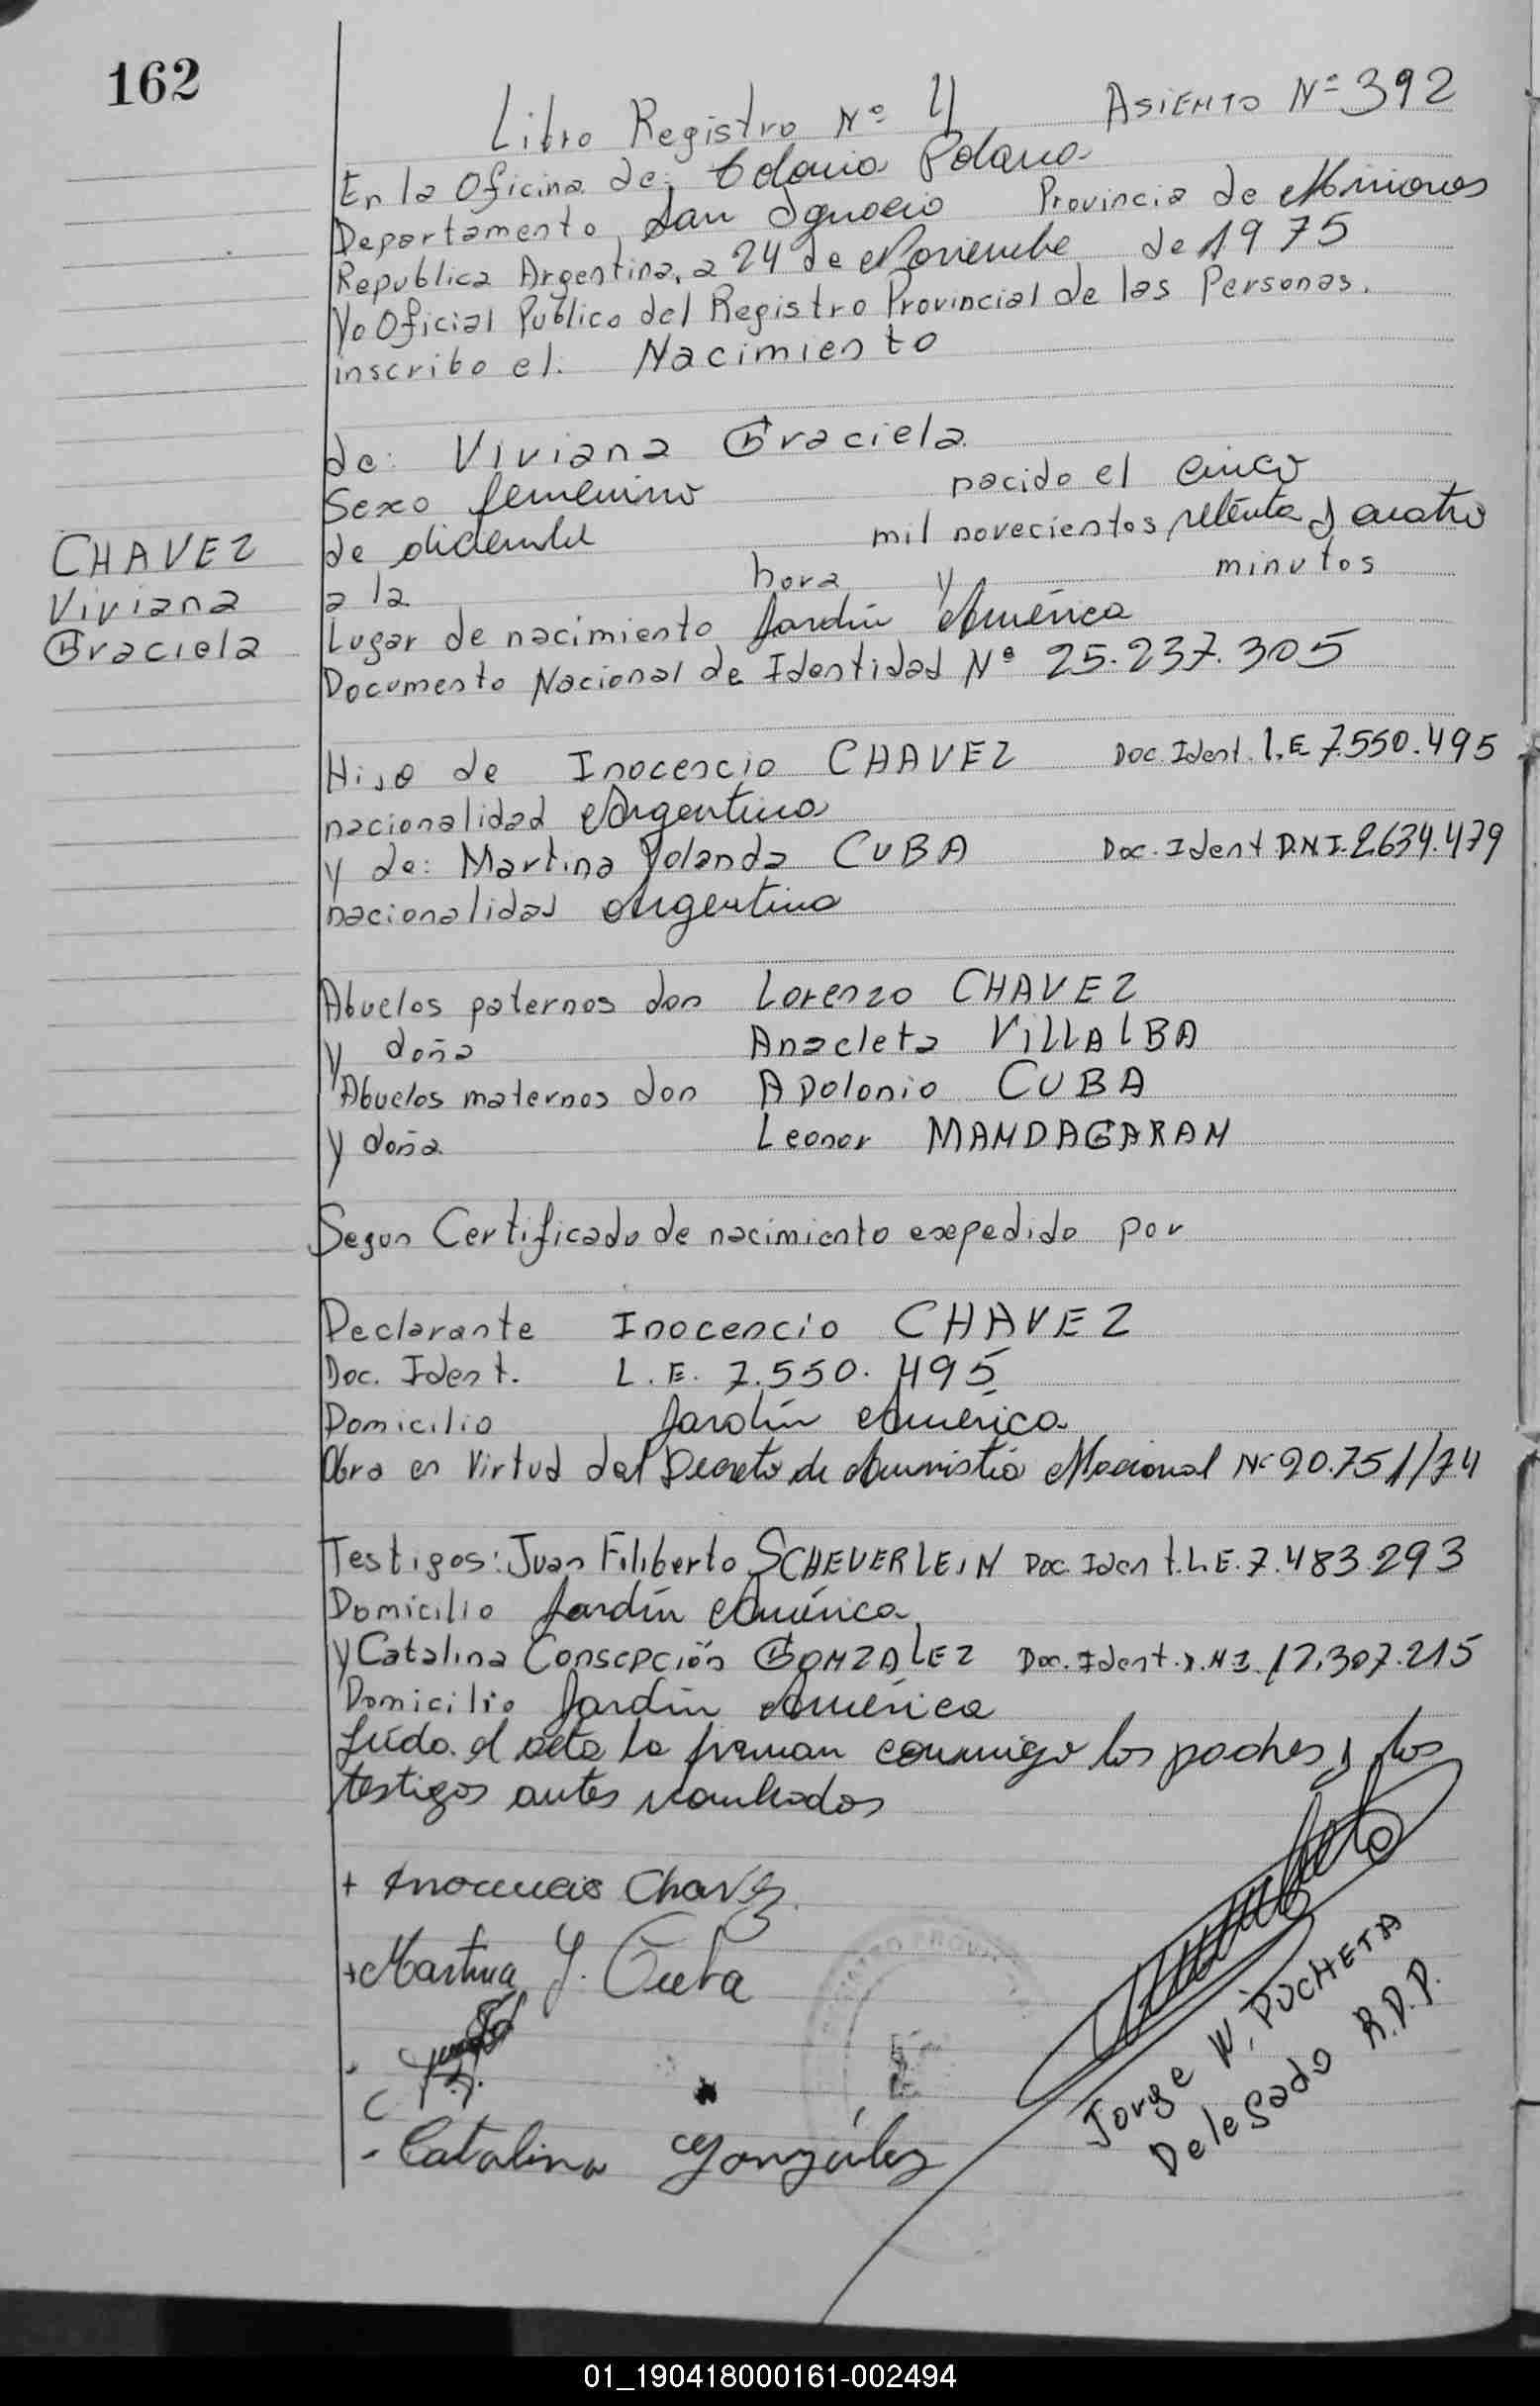 162
Libro Registro Nº 4 ASIENTO Nº 392
En la Oficina de: Colonia Polana
Departamento San Ignacio Provincia de Misiones
Republica Argentina, a 24 de Noviembre de 1975
Yo Oficial Público del Registro Provincial de las Personas.
inscribo el: Nacimiento
de: Viviana Graciela
Sexo femenino nacido el cinco
de diciembre mil novecientos setenta y cuatro
a la hora y minutos
CHAVEZ
Viviana
Graciela
Lugar de nacimiento Jardín América
Documento Nacional de Identidad Nº 25.237.305
Hijo de Inocencio CHAVEZ Doc. Ident. L.E 7.550.495
nacionalidad Argentina
y de: Martina Yolanda CUBA Doc. Ident D.N.I. 2.634.479
nacionalidad Argentina
Abuelos paternos don Lorenzo CHAVEZ
y doña Anacleta VILLALBA
Abuelos maternos don Apolonio CUBA
y doña Leonor MANDAGARAN
Segun Certificado de nacimiento exepedido por
Declarante Inocencio CHAVEZ
Doc. Ident. L.E. 7.550.495
Domicilio Jardín América
Obra en Virtud del Decreto de Amnistía Nacional Nº 20.751/74
Testigos: Juan Filiberto SCHEVERLEIN Doc. Ident. L.E. 7.483.293
Domicilio Jardín América
y Catalina Consepción GONZALEZ Doc. Ident. D.N.I. 12.307.215
Domicilio Jardín América
Leído el acta la firman conmigo los padres y los
testigos antes nombrados
+ Inocencio Chavez
+ Martina Y. Cuba
- Catalina González
Jorge W. PUCHETA
Delegado R.D.P.
01_190418000161-002494